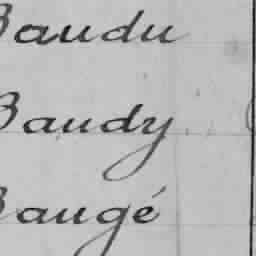 Baudu
Baudy
Baugé